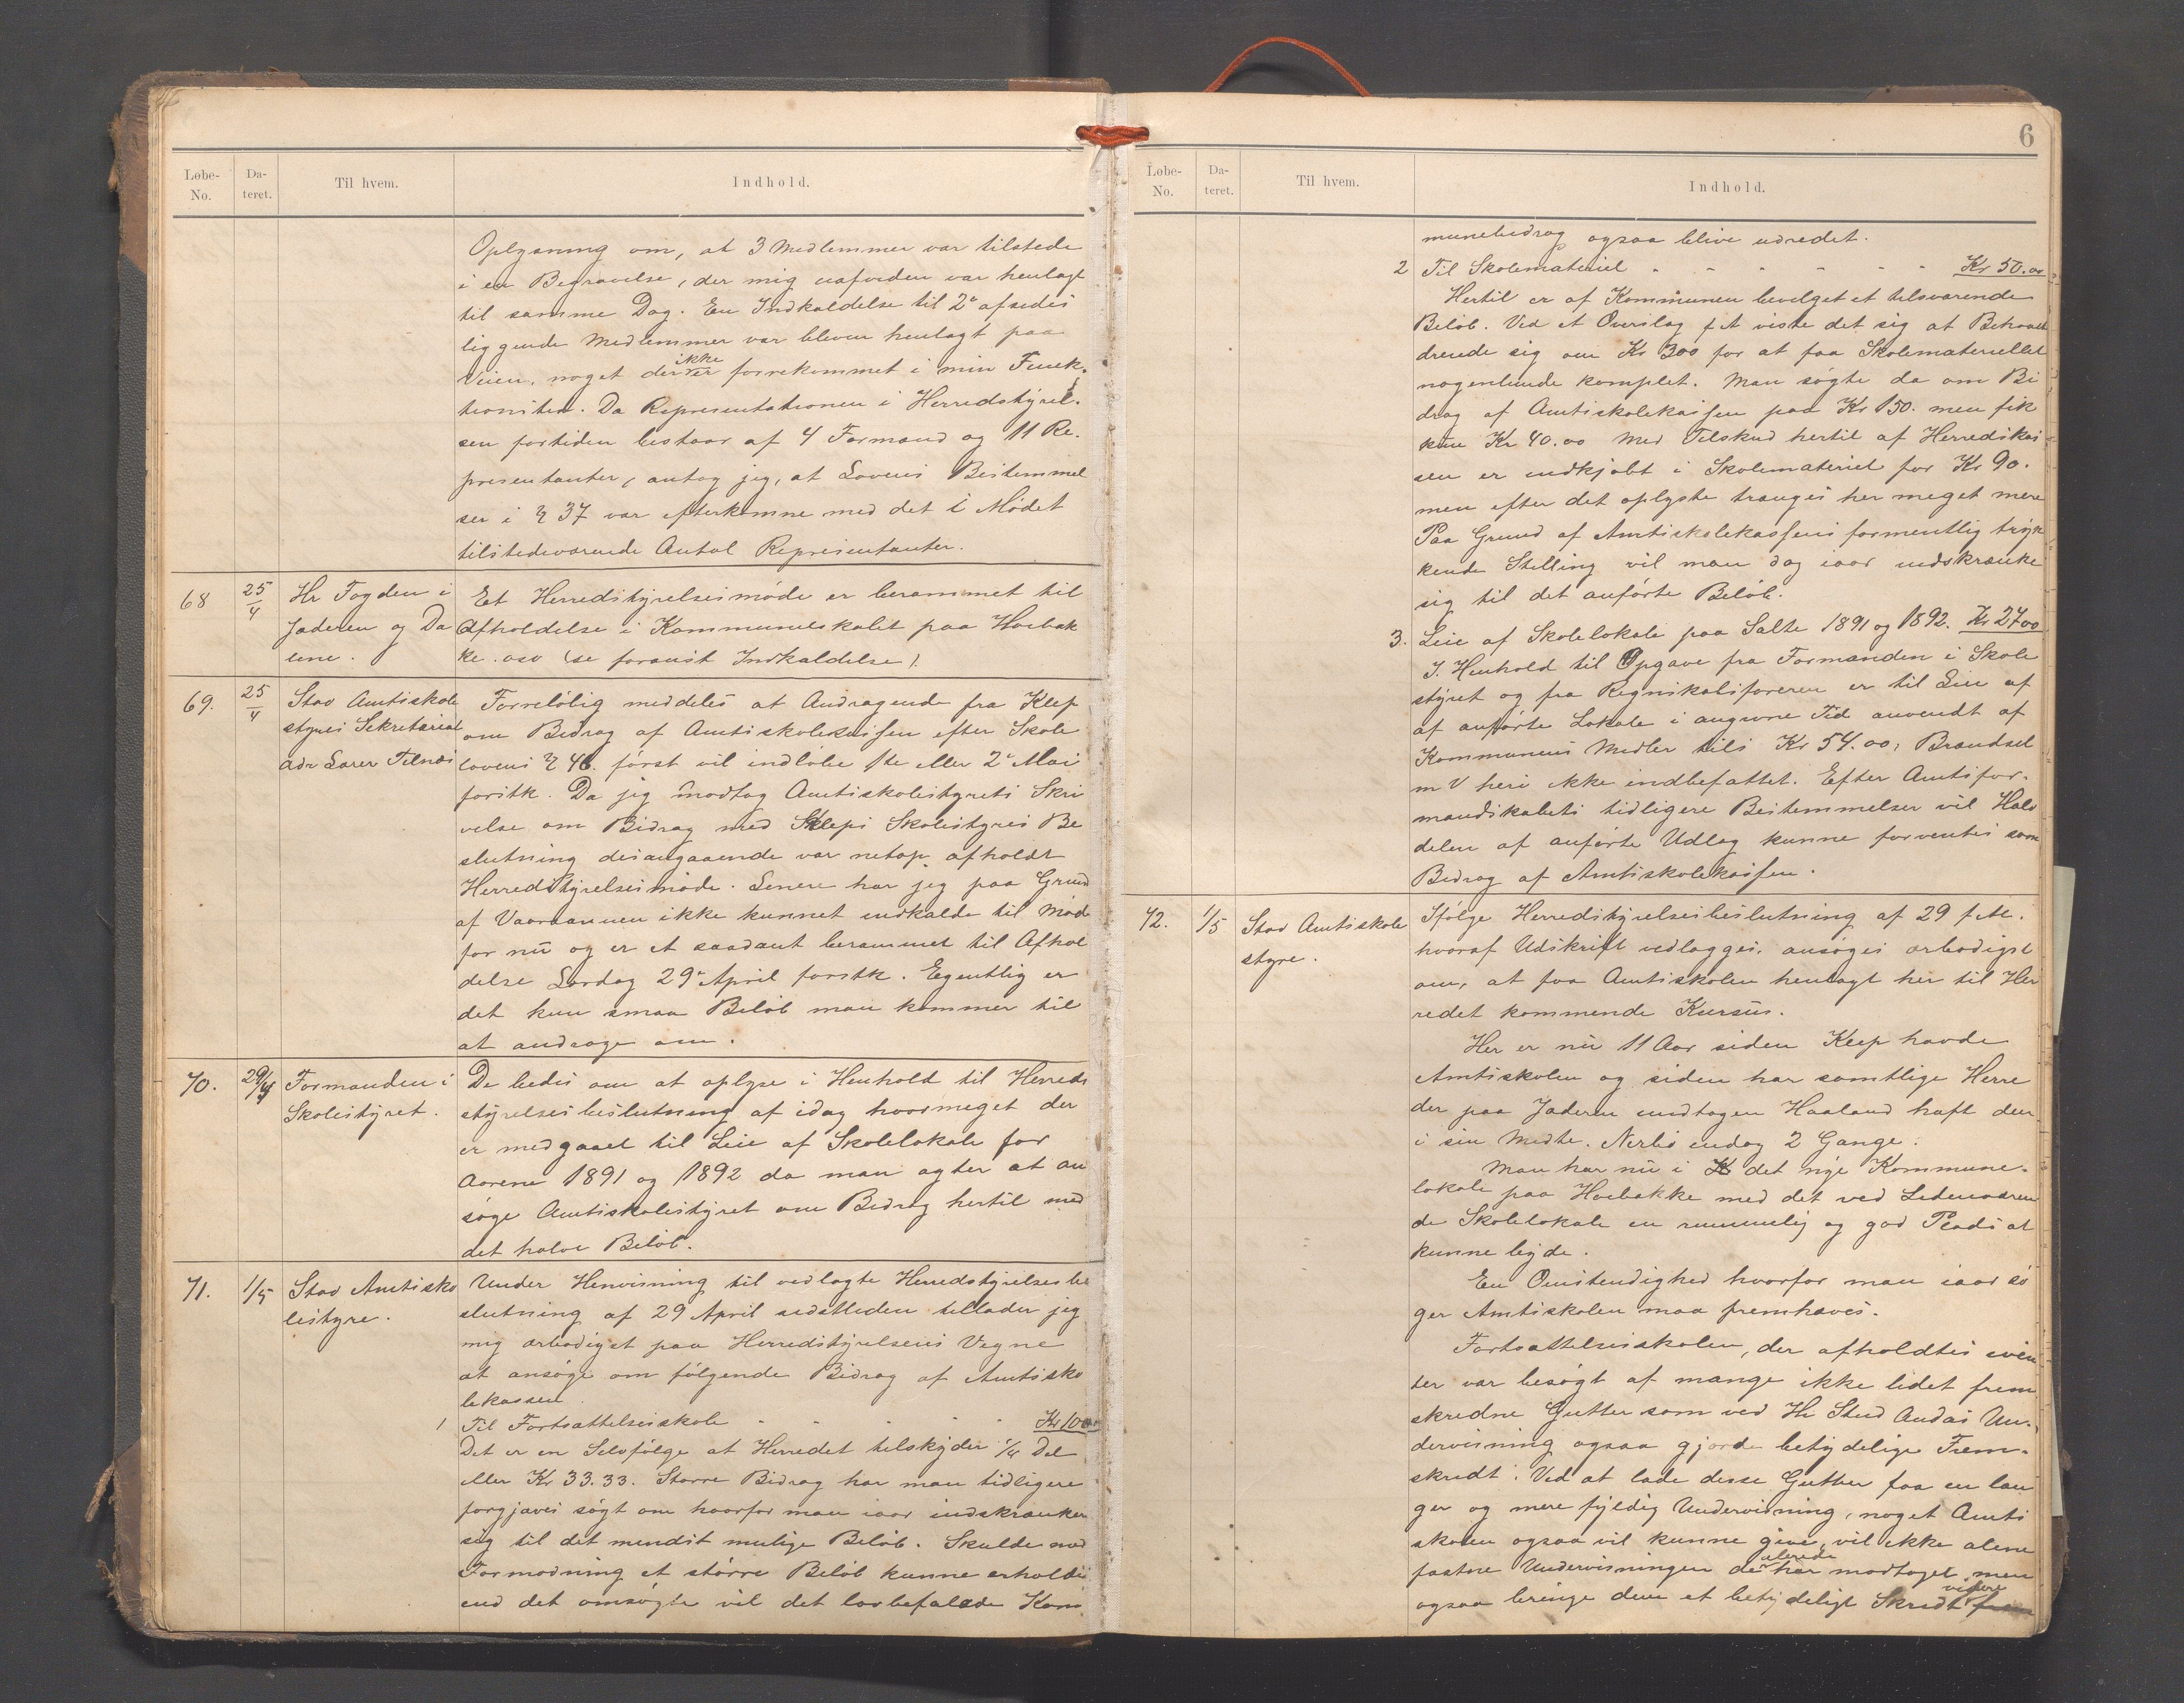 Løbe-No. Da-teret. Til hvem. Indhold.
Oplysning om, at 3 Medlemmer var tilstede
i en Begravelse, der mig uafvidende var henlagt
til samme Dag. En Indkaldelse til 2de afsides
liggende Medlemmer var bleven henlagt paa
Veien, noget der ikke er forekommet i min Funk-
tionstid. Da Repræsentationen i Herredstyrel-
sen fortiden bestaar af 4 Formænd og 11 Re-
præsentanter, antog jeg, at Lovens Bestemmel
ser i § 37 var efterkomne med det i Mødet
tilstedeværende Antal Repræsentanter.
68 25/4 Hr Fogden i Jæderen og Dalene.
Et Herredstyrelsesmøde er berammet til
Afholdelse i Kommuneskolet paa Hoebak
ke. osv (se foranst Indkaldelse).
69. 25/4 Stav Amtsskole styres Sekretariat adr Lærer Tilnæs
Foreløbig meddeles at Andragende fra Klep
om Bidrag af Amtsskolekassen efter Skole
lovens § 46. først vil indløbe 1ste eller 2de Mai
førstk. Da jeg modtog Amtsskolestyrets Skri
velse om Bidrag med Kleps Skolestyres Be
slutning desangaaende var netop afholdt
Herredstyrelsesmøde. Senere har jeg paa Grund
af Vaaraannen ikke kunnet indkalde til Møde
før nu og er et saadant berammet til Afhol
delse Lørdag 29de April førstk. Egentlig er
det kun smaa Beløb man kommer til
at andrage om.
70. 29/4 Formanden i Skolestyret.
De bedes om at oplyse i Henhold til Herreds
styrelsesbeslutning af idag hvormeget der
er medgaaet til Leie af Skolelokale for
Aarene 1891 og 1892 da man agter at an
søge Amtsskolestyret om Bidrag hertil med
det halve Beløb.
71. 1/5 Stav Amtssko lestyre.
Under Henvisning til vedlagte Herredsstyrelsesbe
slutning af 29 April sidstleden tillader jeg
mig ærbødigst paa Herredstyrelsens Vegne
at ansøge om følgende Bidrag af Amtssko
lekassen
1 Til Fortsættelsesskole - - - - - Kr 100
Det er en Selvfølge at Herredet tilskyder 1/4 Del
eller Kr 33.33. Større Bidrag har man tidligere
forgjæves søgt om hvorfor man iaar indskrænker
sig til det mindst mulige Beløb. Skulde mod
Formodning et større Beløb kunne erholdes
end det omsøgte vil det lovbefalede Kom
6
Løbe-No. Da-teret. Til hvem. Indhold.
munebidrag ogsaa blive udredet.
2 Til Skolemateriel - - - - - - Kr 50.00
Hertil er af Kommunen bevilget et tilsvarende
Beløb. Ved et Overslag ifjor viste det sig at Behovet
dreiede sig om Kr 300 for at faa Skolemateriellet
nogenlunde komplet. Man søgte da om Bi
drag af Amtsskolekassen paa Kr 150. men fik
kun Kr 40.00 Med Tilskud hertil af Herredskas
sen er indkjøbt i Skolemateriel for Kr 90.
men efter det oplyste tranges her meget mere
Paa Grund af Amtsskolekassens formentlig tryk
kende Stilling vil man dog iaar indskrænke
sig til det anførte Beløb.
3. Leie af Skolelokale paa Salte 1891 og 1892. Kr 27.00
I Henhold til Opgave fra Formanden i Skole
styret og fra Regnskabsføreren er til Leie af
af anførte Lokale i angivne Tid anvendt af
Kommunens Midler tils Kr 54.00, Brændsel
m V heri ikke indbefattet. Efter Amtsfor-
mandskabets tidligere Bestemmelser vil Halv
delen af anførte Udlæg kunne forventes som
Bidrag af Amtsskolekassen.
72. 1/5 Stav Amtsskole styre.
Ifølge Herredstyrelsesbeslutning af 29 f.M.
hvoraf Udskrift vedlægges, ansøges ærbødigst
om, at faa Amtsskolen henlagt her til Her
redet kommende Kursus.
Her er nu 11 Aar siden Klep havde
Amtsskolen og siden har samtlige Herre
der paa Jæderen undtagen Haaland haft den
i sin Midte. Nærbø endog 2 Gange.
Man har nu i det nye Kommune-
lokale paa Hoebakke med det ved Sidenværen
de Skolelokale en rummelig og god Plads at
kunne byde.
En Omstændighed hvorfor man iaar sø
ger Amtsskolen maa fremhæves.
Fortsættelsesskolen, der afholdtes ivin
ter var besøgt af mange ikke lidet frem
skredne Gutter som ved Hr Stud Andas Un-
dervisning ogsaa gjorde betydelige Frem-
skridt. Ved at lade disse Gutter faa en læn
ger og mere fyldig Undervisning, noget Amts
skolen ogsaa vil kunne give, vil ikke alene
fæstne Undervisningen de allerede har modtaget men
ogsaa bringe dem et betydeligt Skridt videre